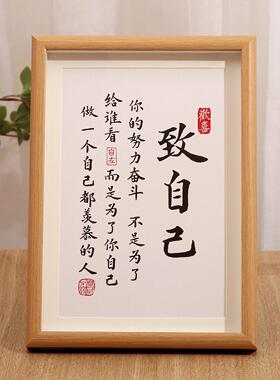 歡喜
致自己
你的努力奋斗 不是为了
给谁看 而是为了你自己
做一个自己都羡慕的人
自在